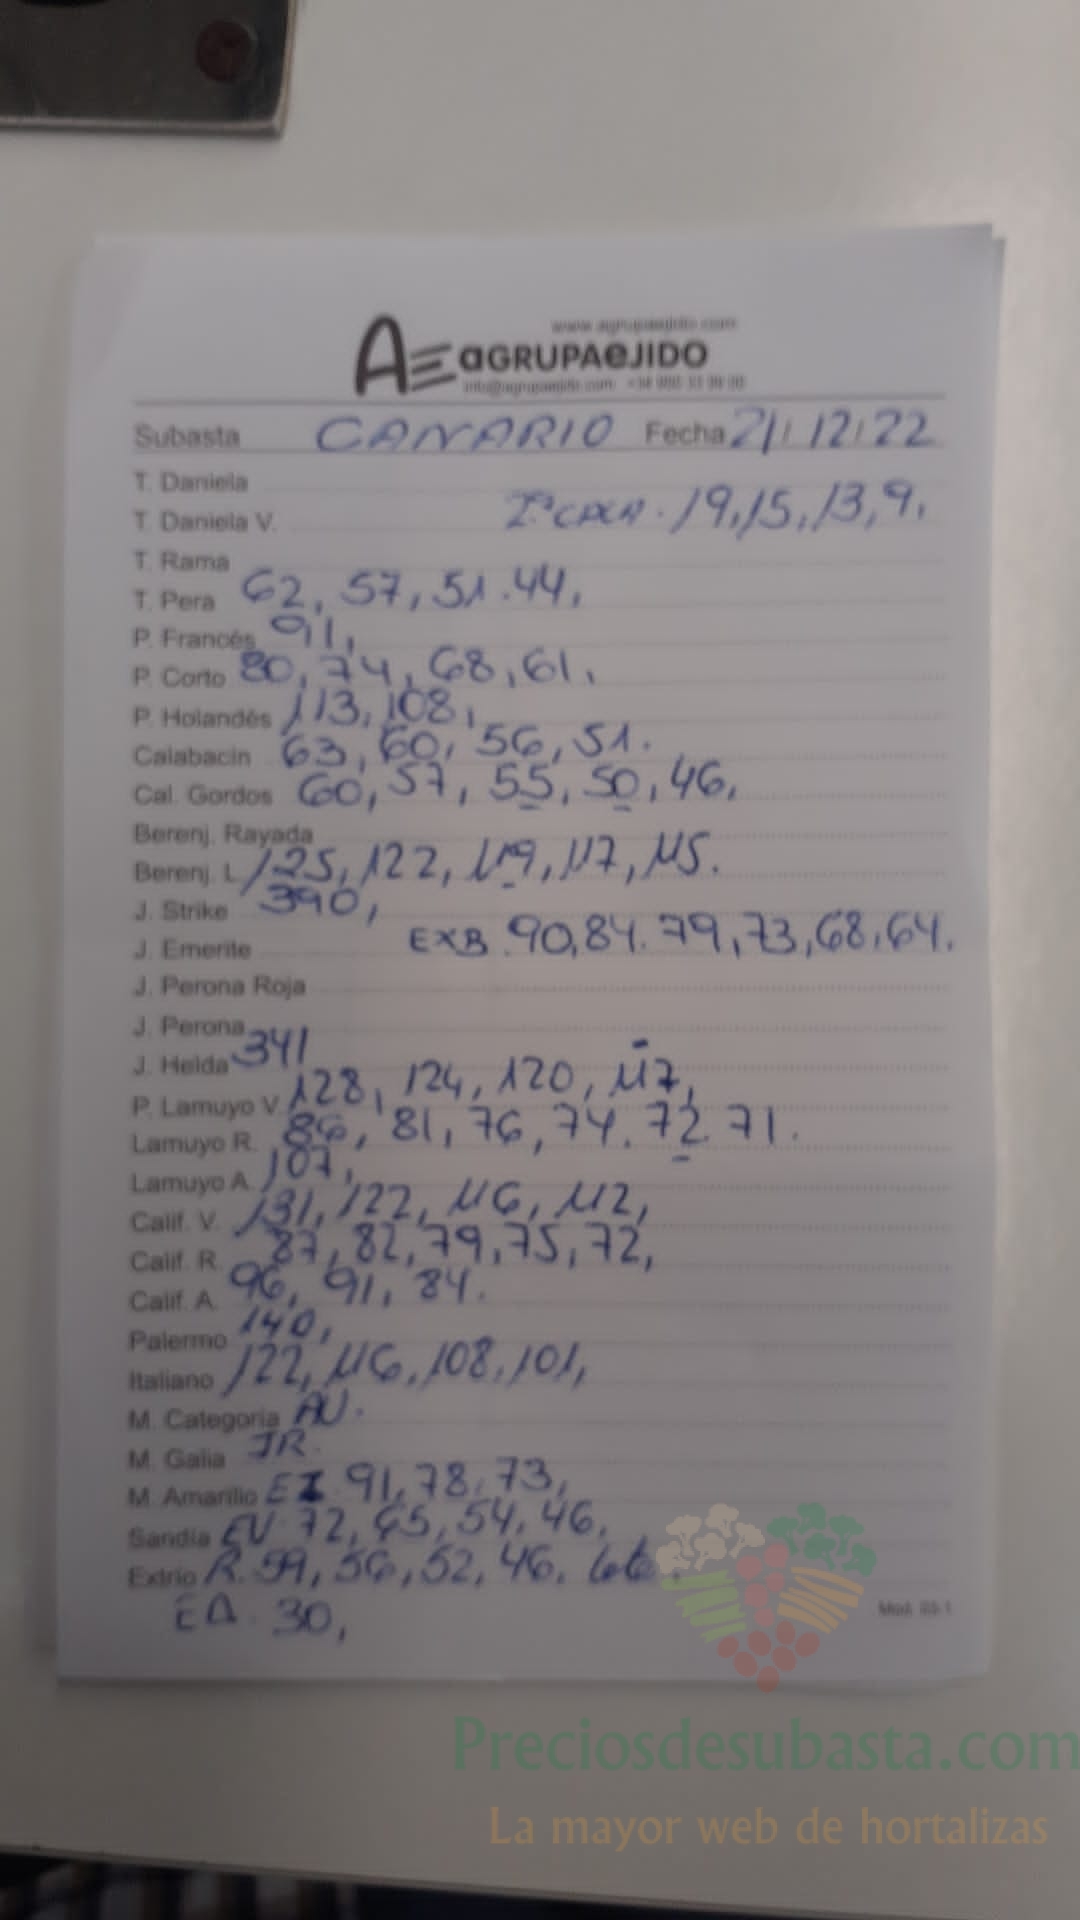 www.agrupaejido.com
AE aGRUPAeJIDO
info@agrupaejido.com
Subasta CANARIO Fecha 21/12/22
T. Daniela
T. Daniela V. 2ª CALA. 19, 15, 13, 9,
T. Rama
T. Pera 62, 57, 51. 44,
P. Francés 91,
P. Corto 80, 74, 68, 61,
P. Holandés 113, 108,
Calabacín 63, 60, 56, 51.
Cal. Gordos 60, 57, 55, 50, 46,
Berenj. Rayada
Berenj. L 125, 122, 119, 117, 115.
J. Strike 390,
J. Emerite EXB. 90, 84. 79, 73, 68, 64.
J. Perona Roja
J. Perona
J. Helda 341
P. Lamuyo V. 128, 124, 120, 117,
Lamuyo R. 86, 81, 76, 74. 72. 71.
Lamuyo A. 107,
Calif. V. 131, 122, 116, 112,
Calif. R. 87, 82, 79, 75, 72,
Calif. A. 96, 91, 84.
Palermo 140,
Italiano 122, 116, 108, 101,
M. Categoría AU.
M. Galia JR.
M. Amarillo 91, 78, 73,
Sandía EV. 72, 65, 54, 46,
Extrio R. 59, 56, 52, 46.
EA. 30,
Mod. 03-1
Preciosdesubasta.com
La mayor web de hortalizas